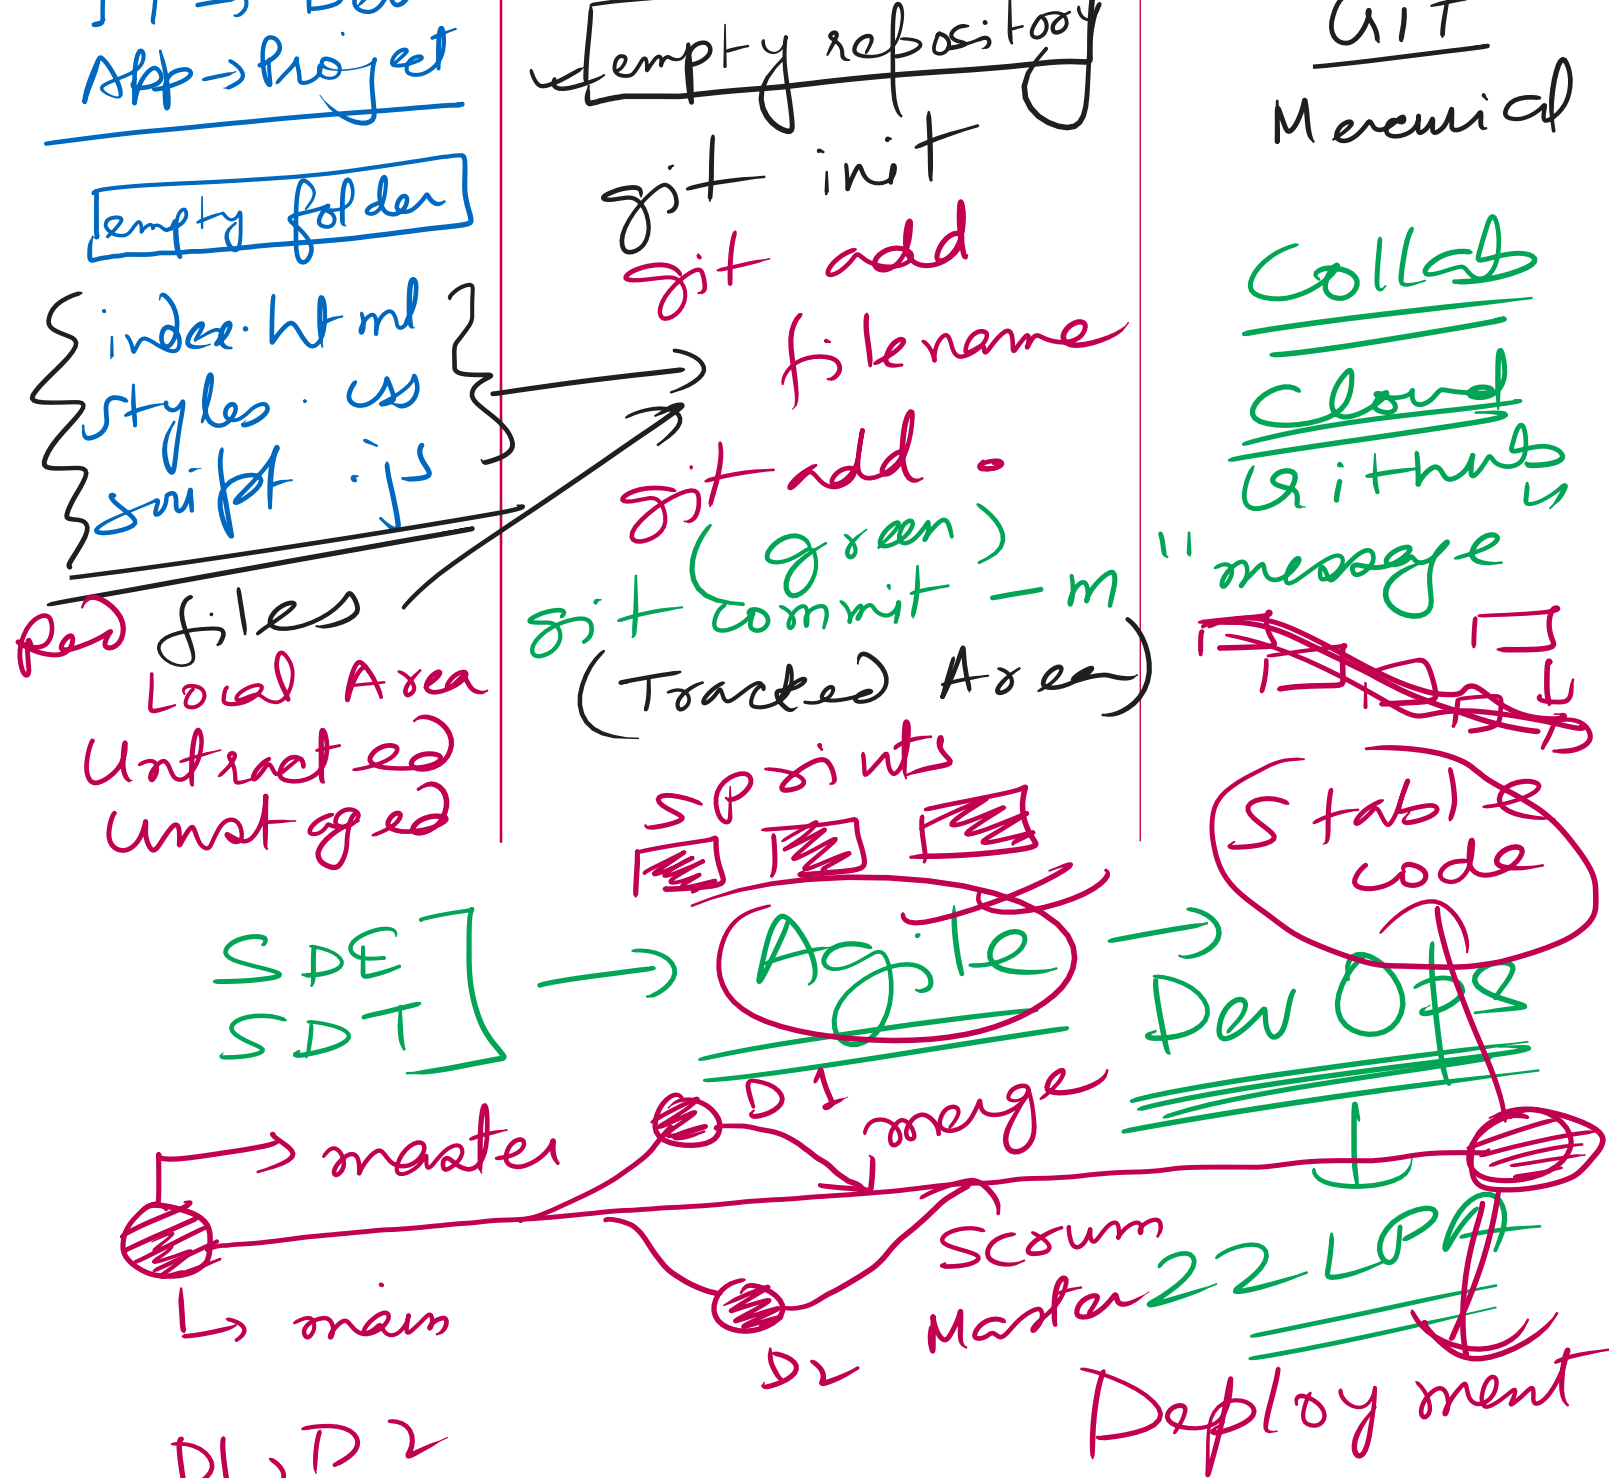 App → Project
empty folder
index.html
styles.css
script.js
Red files
Local Area
Untracted
Unstaged
empty repository
git init
git add
filename
git add .
(green)
git commit - m
(Tracked Area)
Sprints
GIT
Mercurial
Collab
Cloud
Github
"message"
Stable
code
SDE
SDT
→ Agile → DevOps
D1
merge
master
main
D2
Scrum
Master
22 LPA
Deployment
D1, D2